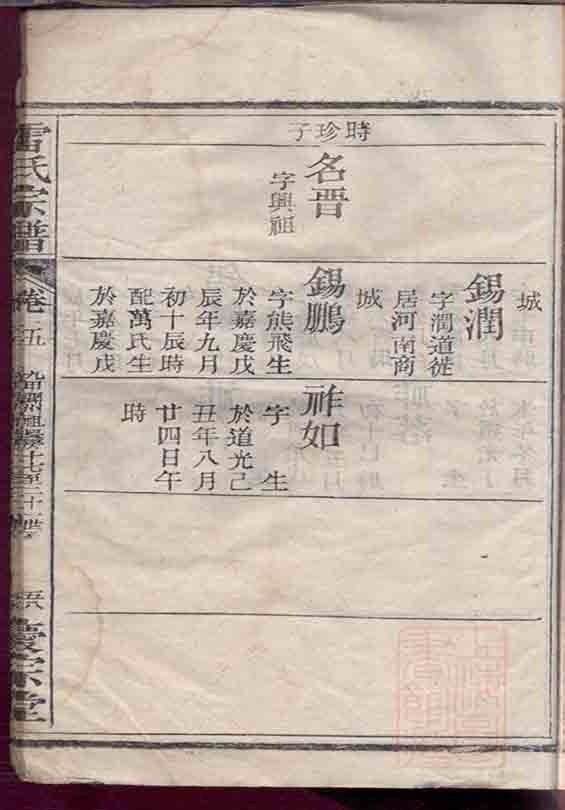 時珍子
名晋
字興祖
城
錫潤
字潤道徙
居河南商
城
錫鵬
字熊飛生
於嘉慶戊
辰年九月
初十辰時
配萬氏生
於嘉慶戊
祚如
字　生
於道光己
丑年八月
廿四日午
時
雷氏宗譜
卷五
慶宗堂